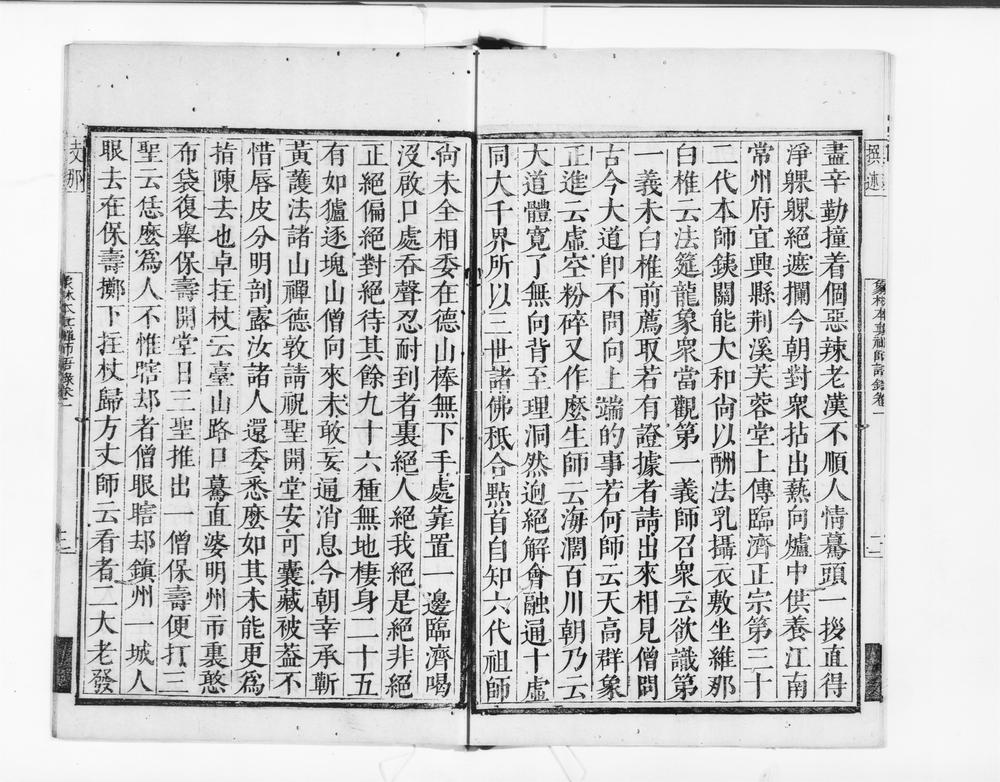 撰述
盡辛勤撞着個惡辣老漢不順人情驀頭一拶直得
淨躶躶絕遮攔今朝對衆拈出爇向爐中供養江南
常州府宜興縣荆溪芙蓉堂上傳臨濟正宗第三十
二代本師銕關能大和尙以酬法乳攝衣敷坐維那
白椎云法筵龍象衆當觀第一義師召衆云欲識第
一義未白椎前薦取若有證據者請出來相見僧問
古今大道卽不問向上一端的事若何師云天高群象
正進云虛空粉碎又作麽生師云海濶百川朝乃云
大道體寬了無向背至理洞然逈絕解會融通十虛
同大千界所以三世諸佛秪合㸃首自知六代祖師
尙未全相委在德山棒無下手處靠置一邊臨濟喝
沒啟口處吞聲忍耐到者裏絕人絕我絕是絕非絕
正絕偏絕對絕待其餘九十六種無地棲身二十五
有如獹逐塊山僧向來未敢妄通消息今朝幸承蘄
黃護法諸山禪德敦請祝聖開堂安可囊藏被葢不
惜唇皮分明剖露汝諸人還委悉麽如其未能更爲
指陳去也卓拄杖云臺山路口驀直婆明州市裏憨
布袋復舉保壽開堂日三聖推出一僧保壽便打三
聖云恁麽爲人不惟瞎却者僧眼瞎却鎭州一城人
眼去在保壽擲下拄杖歸方丈師云看者二大老發
支那